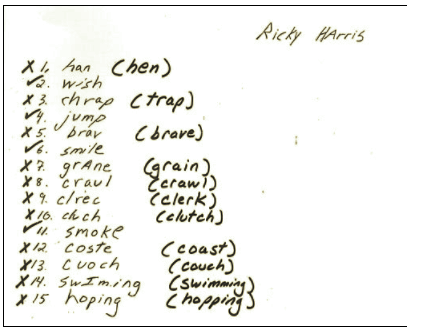 Ricky HArris
X 1. han (hen)
✓2. wish
X 3. chrap (trap)
✓4. jump
X 5. brav (brave)
✓6. smile
X 7. grAne (grain)
X 8. craul (crawl)
X 9. clrec (clerk)
X 10. cluch (clutch)
✓11. smoke
X12. coste (coast)
X13. cuoch (couch)
X14. swIming (swimming)
X 15 hoping (hopping)